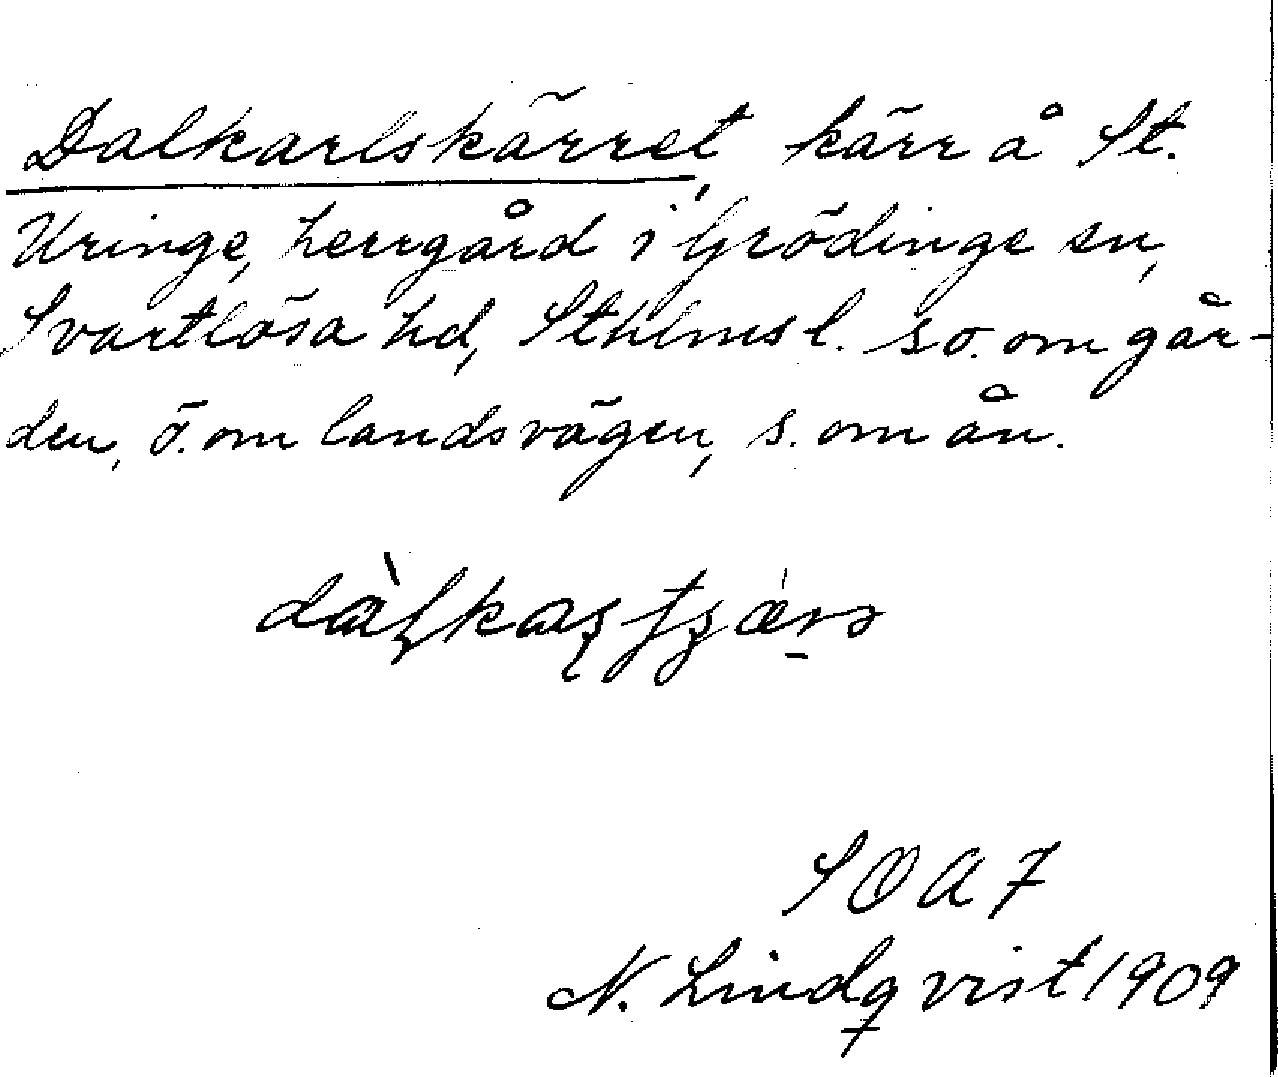 Dalkarlskärret, kärr å St.
Uringe, herrgård i Grödinge sn,
Svartlösa hd, Sthlms l. so. om går-
den, ö. om landsvägen, s. om ån.
SOAF
N. Lindqvist 1909